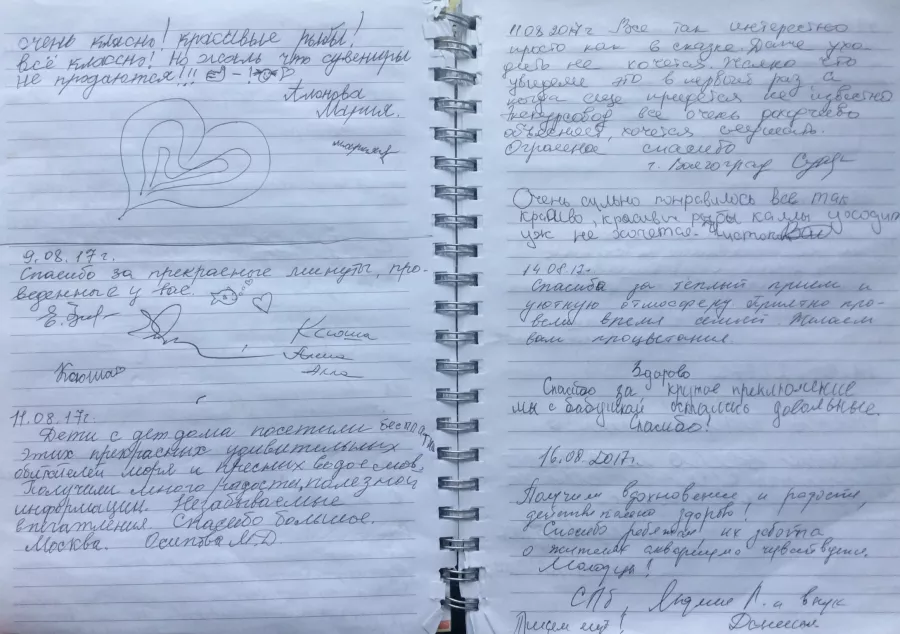 очень классно! красивые рыбы!
всё классно! Но жаль что сувениры
не продаются!!!
Мария.
9.08.17г.
Спасибо за прекрасные минуты, про-
веденные у вас.
Ксюша
Анна
Элла
11.08.17г.
Дети с дет дома посетили бесплатно
этих прекрасных удивительных
обитателей моря и пресных водоемов,
Получили много радости, полезной
информации. Незабываемые
впечатления. Спасибо большое.
Москва. Осипова М.Д
11.08.2017г Все так интересно
просто как в сказке. Даже ухо-
дить не хочется. Жалко что
увидели это в первый раз а
когда еще придется не известно
все очень доходчиво
объясняет, хочется слушать.
Огромное спасибо
г. Волгоград
Очень сильно понравилось все так
красиво, красивы рыбы
уж не хочется.
14.08.17г.
Спасибо за тёплый прием и
уютную атмосферу Приятно про-
вели время семьей Желаем
вам процветания
Здорово
Спасибо за крутое приключение
мы с бабушкой остались довольные.
Спасибо!
16.08.2017г.
Получили вдохновение и радости,
здорово!
Спасибо ребятам, их забота
о жителях аквариума чувствуется.
Молодцы!
СПб Л. и внук